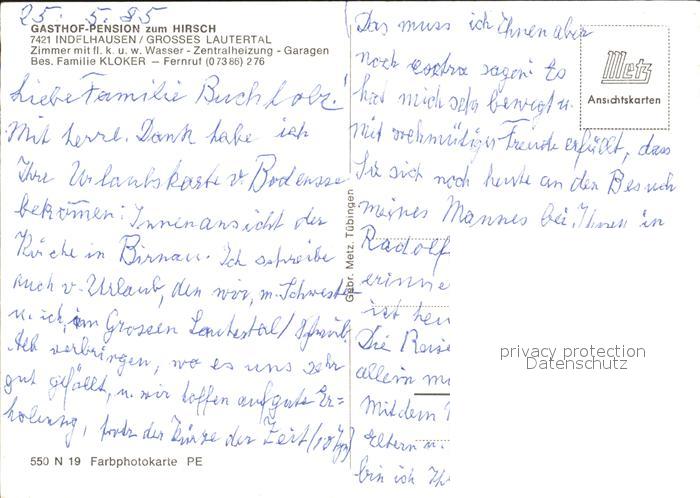 25. 5. 85
GASTHOF-PENSION zum HIRSCH
7421 INDELHAUSEN / GROSSES LAUTERTAL
Zimmer mit fl. k. u. w. Wasser - Zentralheizung - Garagen
Bes. Familie KLOKER — Fernruf (07386) 276
Liebe Familie Buchholz!
Mit herzl. Dank habe ich
Ihre Urlaubskarte v. Bodensee
bekommen: Innenansicht der
Kirche in Birnau. Ich schreibe
auch v. Urlaub, den wir, m. Schwester
u. ich, im Grossen Lautertal / Schwäb.
Alb verbringen, wo es uns sehr
gut gefällt, u. wir hoffen auf gute Er=
holung, trotz der Kürze der Zeit (10 Tg.)
550 N 19 Farbphotokarte PE
Gebr. Metz, Tübingen
Metz
Ansichtskarten
Das muss ich Ihnen aber
noch extra sagen: Es
hat mich sehr bewegt u.
mit wehmütiger Freude erfüllt, dass
Sie sich noch heute an den Besuch
meines Mannes bei Ihnen in
Radolf
erinne
ist heu
Die Reise
allein m
Mit dem
Eltern u.
bin ich Ih
privacy protection
Datenschutz